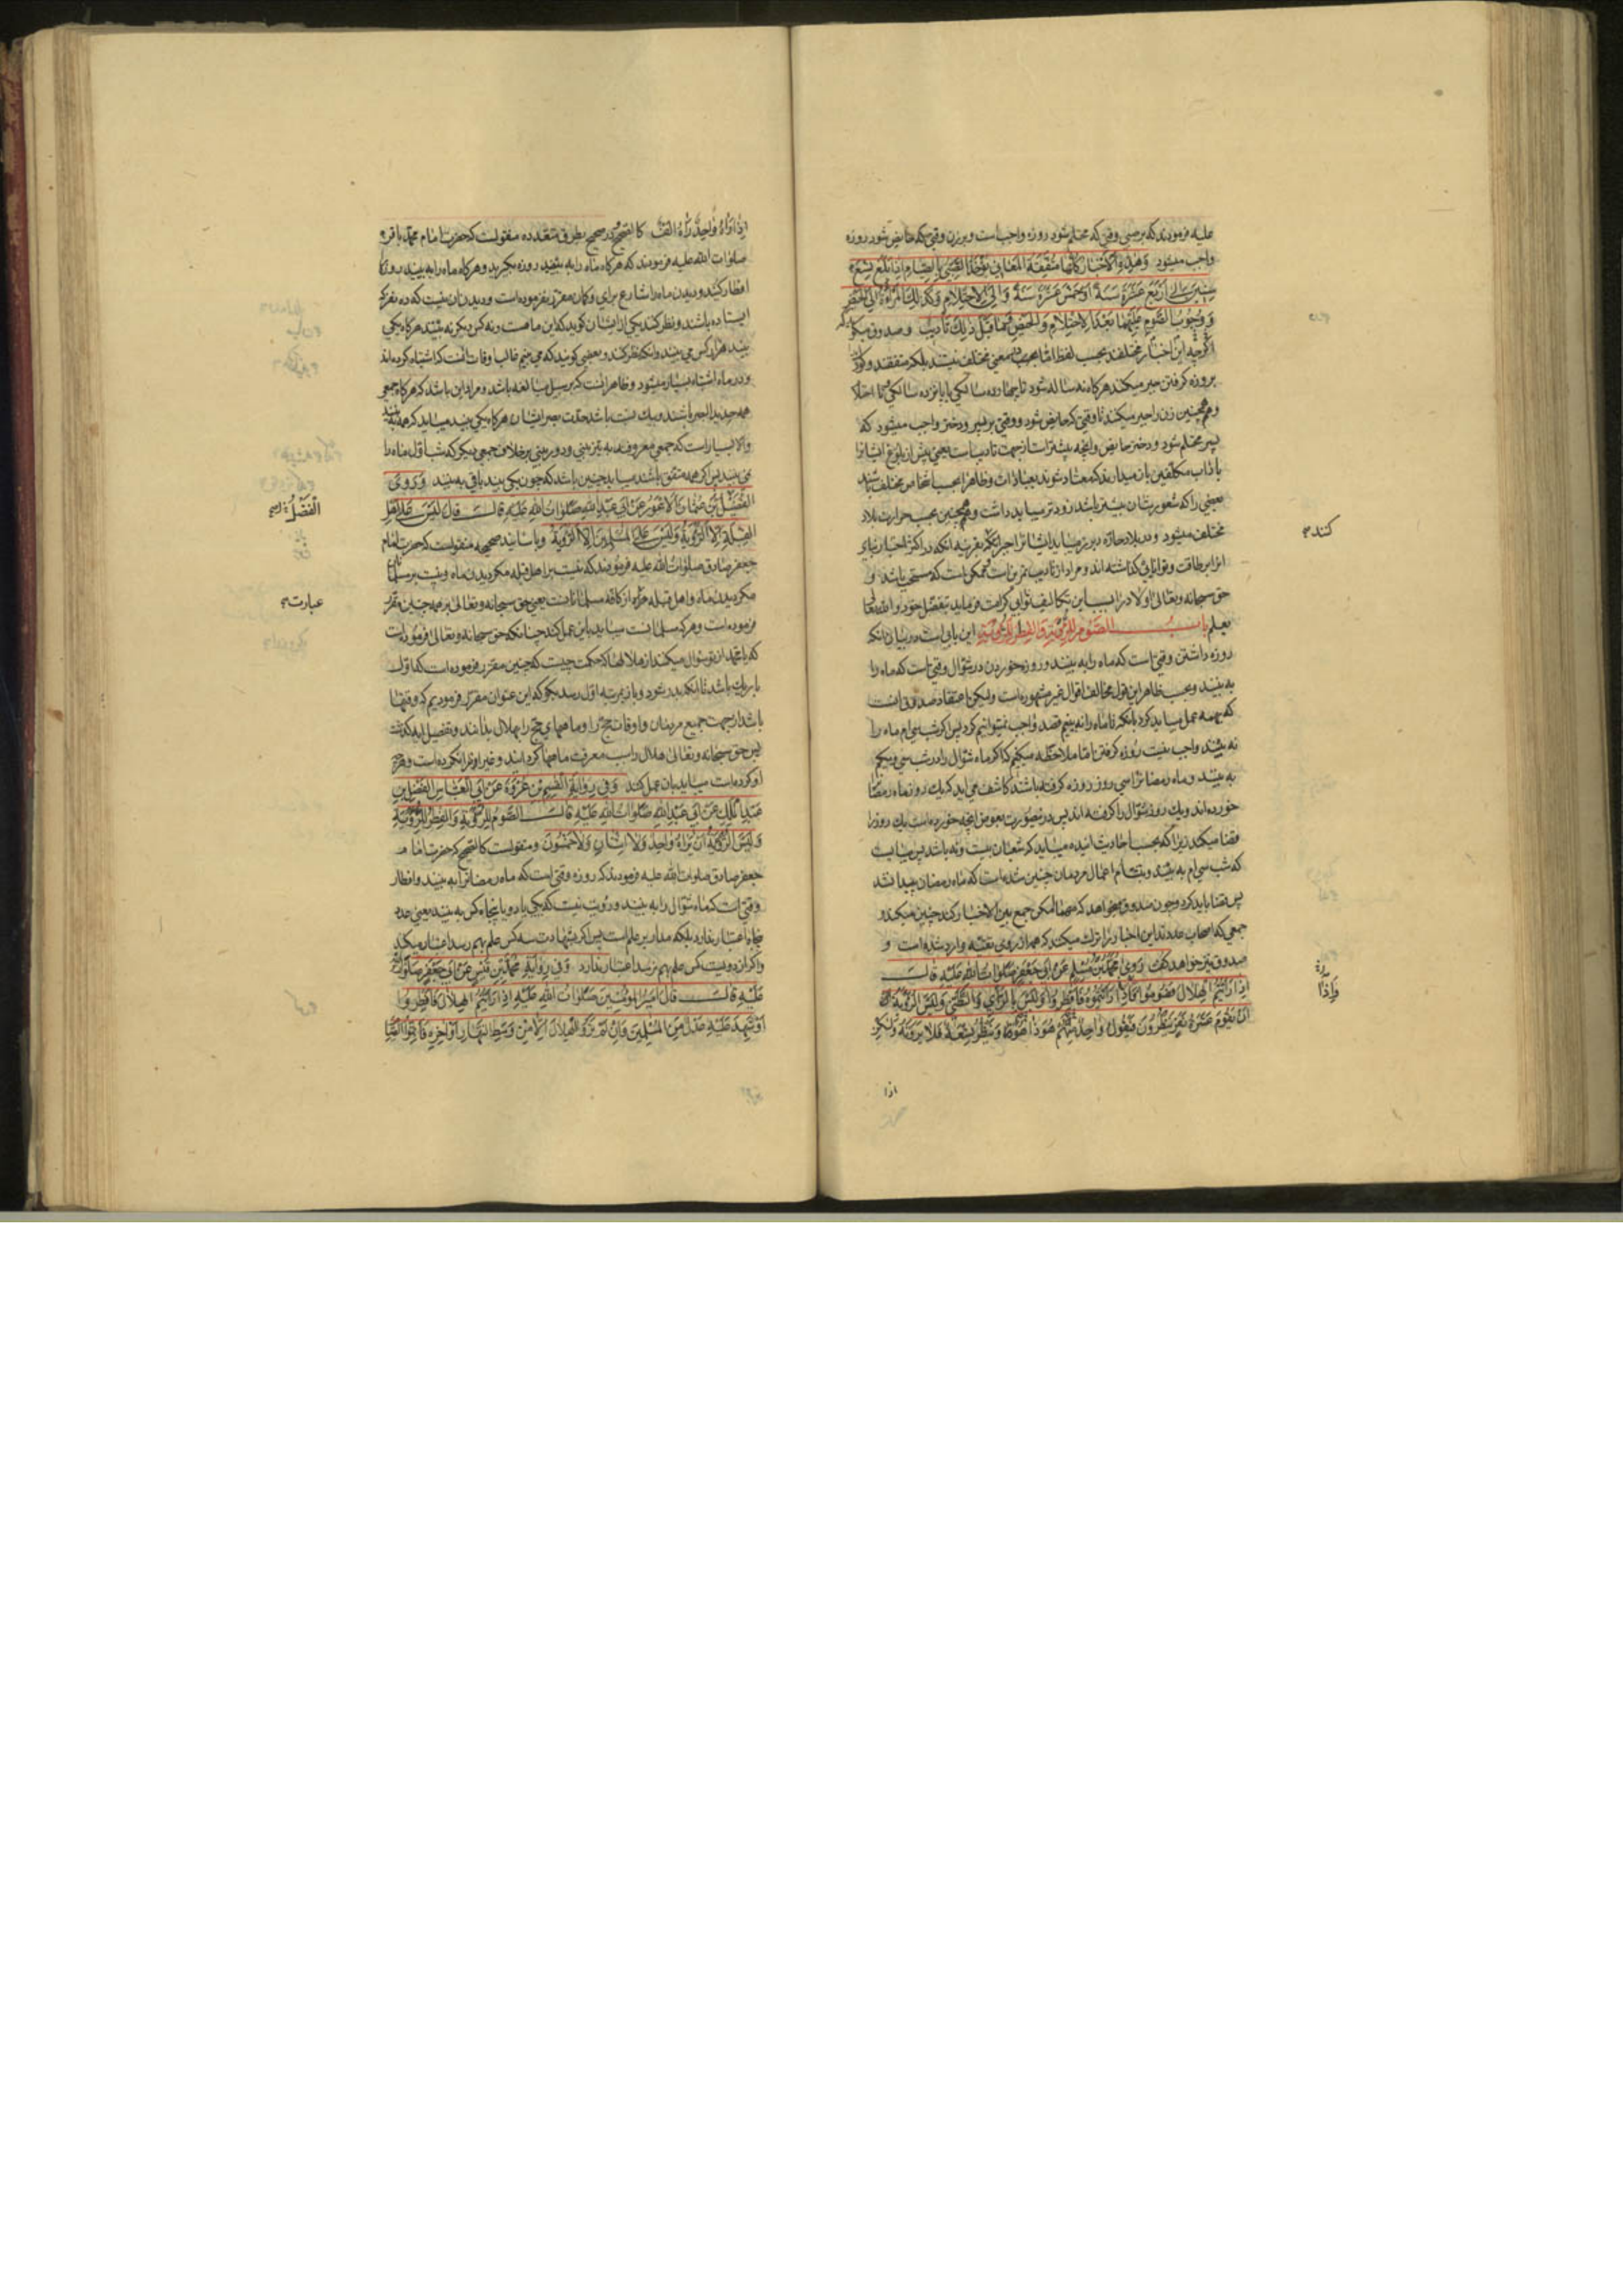 علیه فرمودند که بر صبی وقتی که محتلم شود روزه واجب است و بر زن وقتی که حایض شود روزه
واجب میشود وَهٰذِهِ الْأَخْبَارُ كُلُّهَا مُتَّفِقَةُ الْمَعَانِي يُؤْخَذُ الصَّبِيُّ بِالصِّيَامِ إِذَا بَلَغَ تِسْعَ
سِنِينَ إِلَى أَرْبَعَ عَشْرَةَ سَنَةً أَوْ خَمْسَ عَشْرَةَ سَنَةً وَإِلَى الْاِحْتِلَامِ وَكَذٰلِكَ الْمَرْأَةُ إِلَى الْحَيْضِ
وَوُجُوبُ الصَّوْمِ عَلَيْهِمَا بَعْدَ الْاِحْتِلَامِ وَالْحَيْضِ وَمَا قَبْلَ ذٰلِكَ تَأْدِيبٌ و صدوق میگوید که
اگرچه این اخبار مختلفند بحسب لفظ اما بحسب معنی مختلف نیستند بلکه متفقند و کودک را
بروزه گرفتن جبر میکند هرگاه نه ساله شود تا چهارده سالگی یا پانزده سالگی تا احتلام
و همچنین زن را جبر میکنند تا وقتی که حایض شود و وقتی بر پسر و دختر واجب میشود که
پسر محتلم شود و دختر حایض و آنچه پیشتر است از جهت تادیب است یعنی پیش از بلوغ ایشانرا
باداب مکلفین باز میدارند که معتاد شوند بعبادات و ظاهرا بحسب اشخاص مختلف
بعضی را که شعورشان بیشتر باشد زودتر میباید داشت و همچنین بحسب حرارت بلاد
مختلف میشود و در بلاد حاره دیرتر میباید ایشانرا اجرا بقرینه آنکه در اکثر اخبار بنای
انرا بر طاقت و توانائی گذاشته‌اند و مراد از تادیب تمرین است و ممکن است که مستحبی باشد و
حق سبحانه و تعالی اولاد را باین تکالیف ثوابی کرامت فرماید بتفضل خود و الله تعالی
یعلم بَابُ الصَّوْمِ لِلرُّؤْيَةِ وَالْفِطْرِ لِلرُّؤْيَةِ این بابی است در بیان انکه
روزه داشتن وقتی است که ماه را به بینند و روزه خوردن در شوال وقتی است که ماه را
به بینند و بحسب ظاهر این قول مخالف اقوال غیر مشهوره است ولیکن باعتقاد صدوق انست
که بهمه عمل میباید کرد بانکه تا ماه را نه بینیم قصد واجب نمیتوانیم کرد پس اگر شب سی‌ام ماه را
نه بینند واجب نیست روزه گرفتن اما ملاحظه میکنیم که اگر ماه شوال را در شب سی و یکم
به بینند و ماه رمضانرا سی روز روزه گرفته باشند کاشف می‌اید که یک روز ماه رمضان
خورده‌اند و یک روز شوال را گرفته‌اند پس در نصورت بعوض انچه خورده است یک روز را
قضا میکند زیرا که بحسب احادیث آینده میباید که شعبان بیست و نه باشد پس میبایست
که شب سی‌ام به بینند و بشآم اعمال مردمان چنین شده است که ماه رمضان پیدا نشد
پس قضا باید کرد و چون صدوق میخواهد که مهما امکن جمع بین الاخبار کند چنین میکند و
جمعی که اصحاب عددند این اخبار را ترک میکنند که همه از روی تقیه وارد شده است و
صدوق نیز خواهد گفت رَوَى مُحَمَّدُ بْنُ مُسْلِمٍ عَنْ أَبِي جَعْفَرٍ صَلَوَاتُ اللهِ عَلَيْهِ قَالَ
إِذَا رَأَيْتُمُ الْهِلَالَ فَصُومُوا وَإِذَا رَأَيْتُمُوهُ فَأَفْطِرُوا وَلَيْسَ بِالرَّأْيِ وَالتَّظَنِّي وَلَيْسَ الرُّؤْيَةُ
أَنْ يَقُومَ عَشَرَةُ نَفَرٍ يَنْظُرُونَ فَيَقُولَ وَاحِدٌ مِنْهُمْ هُوَ ذَا هُوَ وَيَنْظُرُ تِسْعَةٌ فَلَا يَرَوْنَهُ وَلٰكِنْ
اذا
کند
إِذَا رَآهُ وَاحِدٌ رَآهُ أَلْفٌ کالصحیح و در صحیح بطرق متعدده منقولست که حضرت امام محمد باقر
صلوات الله علیه فرمودند که هرگاه ماه را به بینید روزه بگیرید و هرگاه ماه را به بینید روزه
افطار کنید و دیدن ماه را شارع برای و گمان مقرر نفرموده است و دیدن ان نیست که ده نفر که
ایستاده باشند و نظر کنند یکی از ایشان گوید که این ماهست و نه کس دیگر نه بینند هرگاه یکی
بیند هزار کس می بینند و انکه نظر کند و بعضی گویند که می بینم غالب اوقات انست که اشتباه کرده‌اند
و در ماه اشتباه بسیار میشود و ظاهر انست که بر سبیل مبالغه باشد و مراد این باشد که هرگاه جمعی
همه حدید البصر باشند و یک نسبت باشد حدت بصر ایشان هرگاه یکی بیند میباید که همه به بینند
والا بسیار است که جمعی معروفند به تیزبینی و دوربینی بر خلاف جمعی دیگر که شب اول ماه را
نمی بینند پس اگر همه متفق باشند میباید چنین باشد که چون یکی بیند باقی به بینند وَرَوَى
الْفُضَيْلُ بْنُ عُثْمَانَ الْأَعْوَرُ عَنْ أَبِي عَبْدِ اللهِ صَلَوَاتُ اللهِ عَلَيْهِ قَالَ لَيْسَ عَلَى أَهْلِ
الْقِبْلَةِ إِلَّا الرُّؤْيَةُ وَلَيْسَ عَلَى الْمُسْلِمِينَ إِلَّا الرُّؤْيَةُ و باسانید صحیحه منقولست که حضرت امام
جعفر صادق صلوات الله علیه فرمودند که نیست بر اهل قبله مگر دیدن ماه و نیست بر مسلمانان
مگر دیدن ماه و اهل قبله مراد از کافه مسلمانانست یعنی حق سبحانه و تعالی بر همه چنین مقرر
فرموده است و هر که مسلمانست میباید باین عمل کند چنانکه حق سبحانه و تعالی فرموده است
که یا محمد از تو سؤال میکنند از هلالها که حکمت چیست که چنین مقرر فرموده است که اول
باریک باشد تا انکه بدر شود و باز بمرتبه اول رسد بگو که این عنوان مقرر فرمودیم که وقتها
باشد از جهت جمیع مردمان و اوقات حج را و ماههای حج را بهلال بدانند و تفصیل آیه گذشت
پس حق سبحانه و تعالی هلال را سبب معرفت ماهها گردانید و غیر او را نکرده است و هرچه
او کرده است میباید بان عمل کنند وَفِي رِوَايَةِ الْقَاسِمِ بْنِ عُرْوَةَ عَنْ أَبِي الْعَبَّاسِ الْفَضْلِ بْنِ
عَبْدِ الْمَلِكِ عَنْ أَبِي عَبْدِ اللهِ صَلَوَاتُ اللهِ عَلَيْهِ قَالَ الصَّوْمُ لِلرُّؤْيَةِ وَالْفِطْرُ لِلرُّؤْيَةِ
وَلَيْسَ الرُّؤْيَةُ أَنْ يَرَاهُ وَاحِدٌ وَلَا اثْنَانِ وَلَا خَمْسُونَ و منقولست کالصحیح که حضرت امام
جعفر صادق صلوات الله علیه فرمودند که روزه وقتی است که ماه رمضانرا به بینند و افطار
وقتی است که ماه شوال را به بینند و رویت نیست که یکی یا دو یا پنجاه کس به بینند یعنی عدد
پنجاه اعتبار ندارد بلکه مدار بر علم است پس اگر بشهادت سه کس علم بهم رسد اعتبار میکند
و اگر از دویست کس علم بهم نرسد اعتبار ندارد وَفِي رِوَايَةِ مُحَمَّدِ بْنِ قَيْسٍ عَنْ أَبِي جَعْفَرٍ صَلَوَاتُ اللهِ
عَلَيْهِ قَالَ قَالَ أَمِيرُ الْمُؤْمِنِينَ صَلَوَاتُ اللهِ عَلَيْهِ إِذَا رَأَيْتُمُ الْهِلَالَ فَأَفْطِرُوا
أَوْ شَهِدَ عَلَيْهِ عَدْلٌ مِنَ الْمُسْلِمِينَ وَإِنْ لَمْ تَرَوُا الْهِلَالَ إِلَّا مِنْ وَسَطِ النَّهَارِ أَوْ آخِرِهِ فَأَتِمُّوا الصِّيَامَ
الْفَضْلُ
عبارت